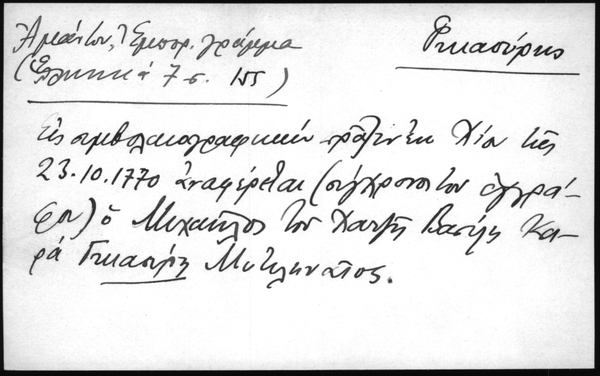 Ἀμάντου, Ἐμπορ. γράμμα
(Ἑλληνικά 7 σ. 155)
Γικασύρης
Εἰς συμβολαιογραφικήν πρᾶξιν ἐκ Χίου τῆς
23.10.1770 ἀναφέρεται (σύγχρονος τοῦ ἐγγρά-
φου) ὁ Μιχαῆλος τοῦ Χατζῆ Βασίλη Κα-
ρᾶ Γικασύρη Μυτιληναῖος.